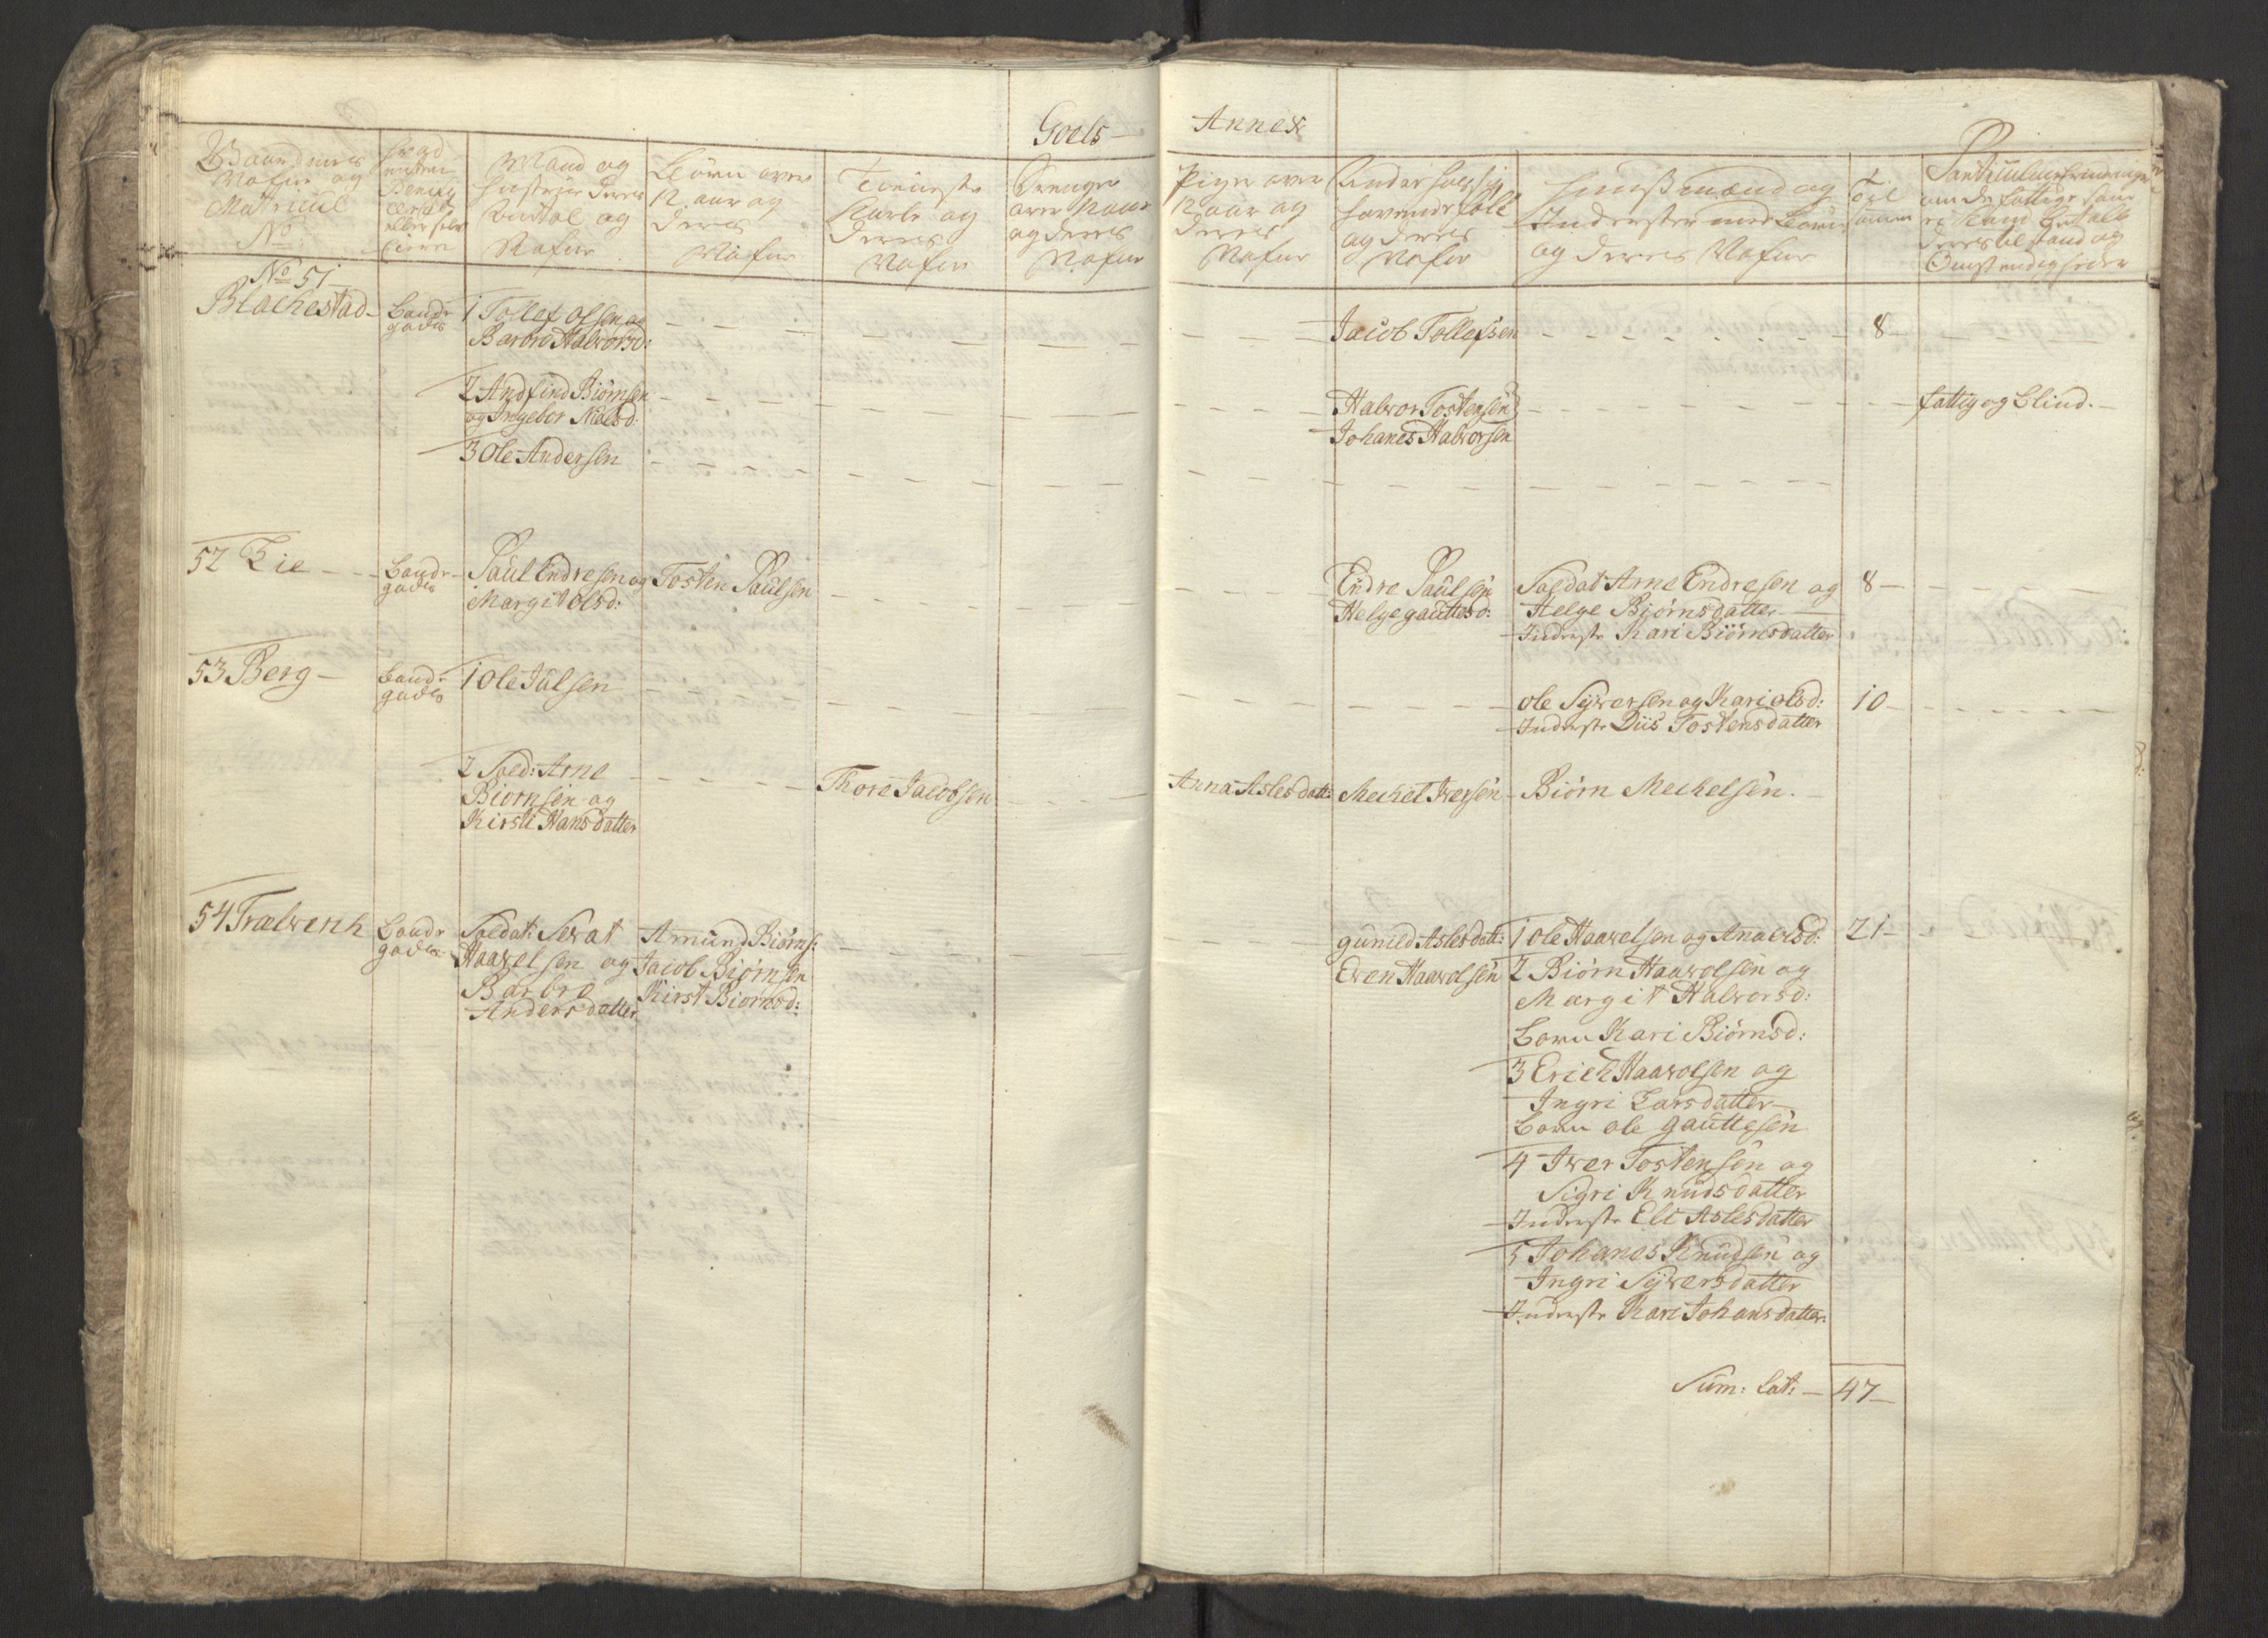 Goels Annex
Gaardenes
Nafne og
Matricul
No
Mand og
Hustrue deres
og
Nafne
Børn over
12 aar og
deres
Nafne
Tieneste
Karle og
deres
Nafne
Drenge
over 12 aar
og deres
Nafne
Piger over
12 aar og
deres
Nafne
og deres
Nafne
Huusmænd og
Inderster med Børn
og deres Nafne
Til
sammen
om de fattige som
ei kand betale
deres tilstand og
Omstændigheder
No 51
Blachestad
Bonde
gods
1 Tollef Olsen og
Barbro Halvorsd:
Jacob Tollefsen
8
2 Andfind Biørnsen
og Ingebor Nielsd:
Halvor Tostensen
Johanes Halvorsen
fattig og blind.
3 Ole Andersen
52 Lie
Bonde
gods
Paul Endresen og
Margit Olsd:
Tosten Paulsen
Endre Paulsen
Helge gauttesd:
Soldat Arne Endresen og
Helge Biørnsdatter
Inderste Kari Biørnsdatter
8
53 Berg
Bonde
gods
1 Ole Julsen
Ole Syversen og Kari Olsd:
Inderste Diis Tostensdatter
10
2 Sold: Arne
Biørnsen og
Kirsti Hansdatter
Thore Jacobsen
Anna Aslesdatt:
Mechel Iversen
Biørn Mechelsen.
54 Trælvenh
Bonde
gods
Soldat: Sevat
Haavelsen og
Barbro
Andersdatter
Amund Biørns:
Jacob Biørnsen
Kirst Biørnsd:
gunild Aslesdatt:
Even Haavolsen
1 Ole Haavelsen og Ana Olsd:
21
2 Biørn Haavolsen og
Margit Halvorsd:
Børn Kari Biørnsd:
3 Erich Haavolsen og
Ingri Larsdatter
Børn Ole gauttesen
4 Iver Tostensen og
Sigri Knudsdatter
Inderste Eli Aslesdatter
5 Johanes Knudsen og
Ingri Syversdatter
Inderste Kari Johansdatter
Sum: Lat: 47